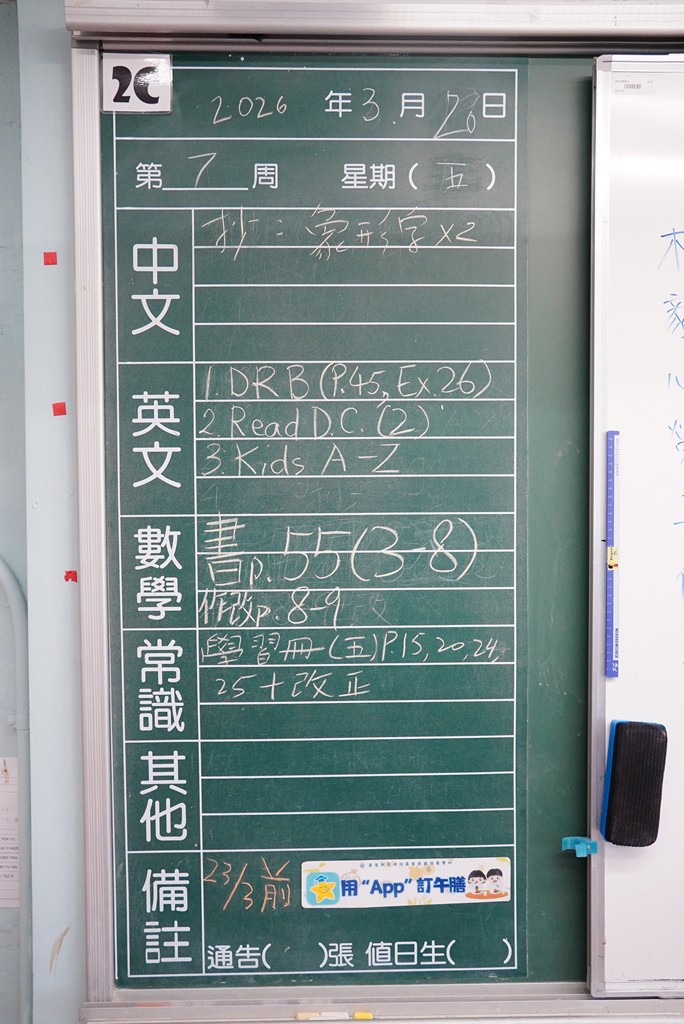 2C
2026 年 3 月 20 日
第 7 周 星期(五)
中文
抄：象形字x2
英文
1. DRB (P.45, Ex.26)
2. Read D.C. (2)
3. Kids A-Z
數學
書p. 55(3-8)
作改p. 8-9
常識
學習冊(五)P.15, 20, 24,
25+改正
其他
備註
23/3前
用“App”訂午膳
通告( )張 值日生( )